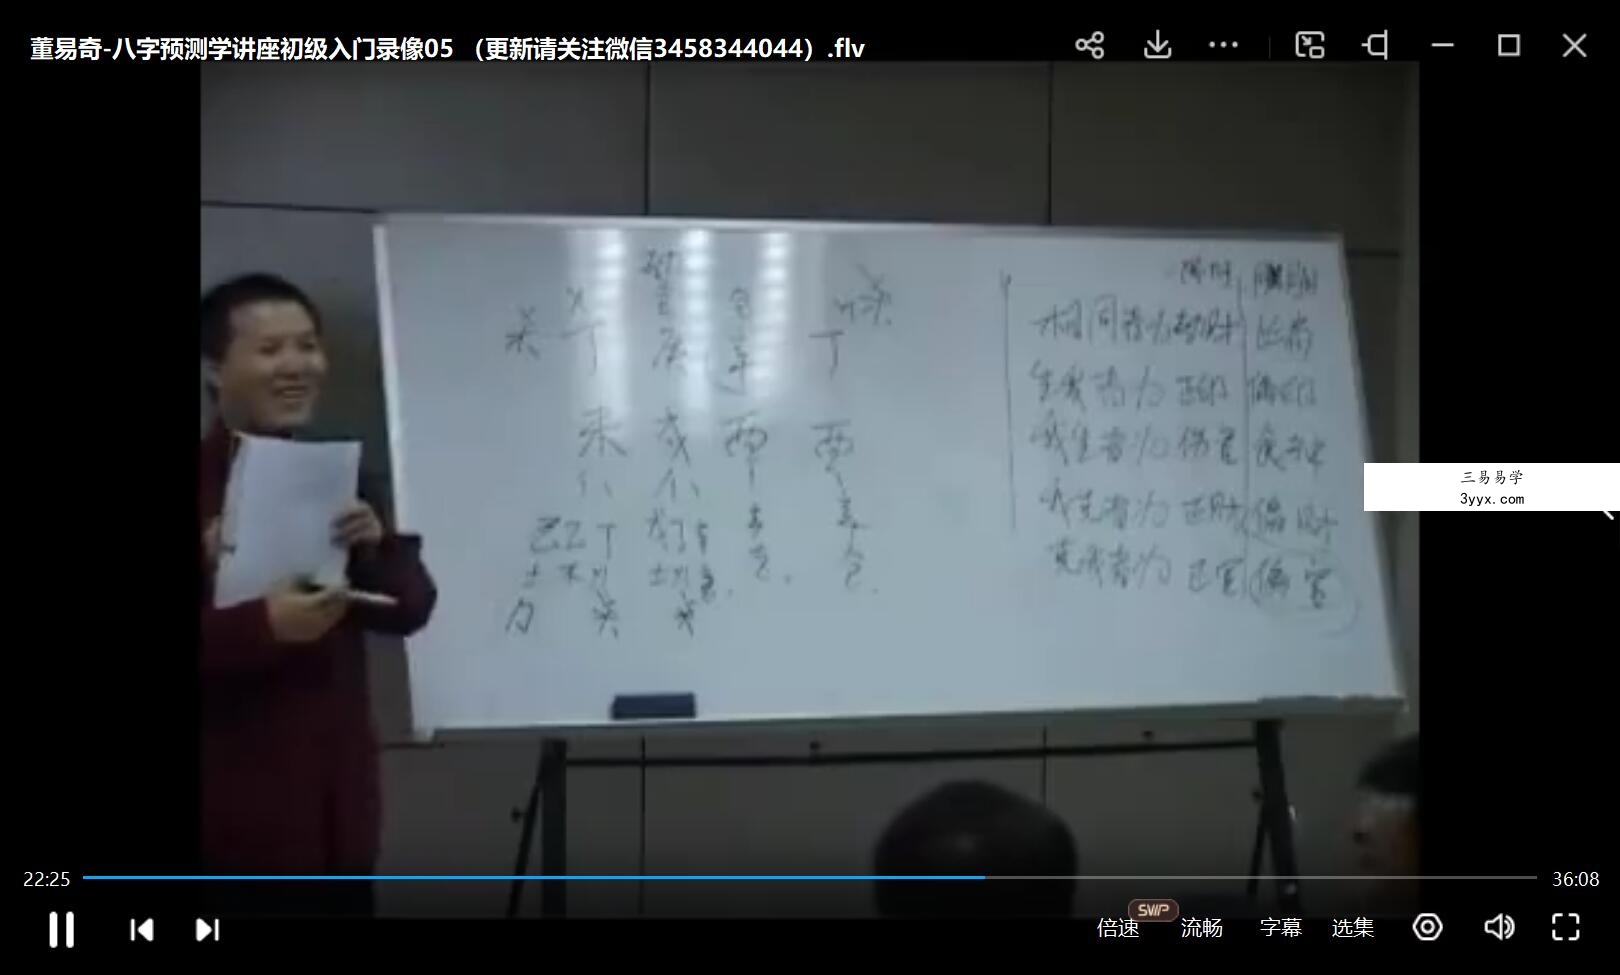 董易奇-八字预测学讲座初级入门录像05 （更新请关注微信3458344044）.flv
丁 庚 辛 丁
未 戌 酉 酉
己乙丁
土木火
相同者为劫财 比肩
生我者为 正印 偏印
我生者为 伤官 食神
我克者为 正财 偏财
克我者为 正官 偏官
三易易学
3yyx.com
22:25
36:08
倍速
SVIP
流畅
字幕
选集